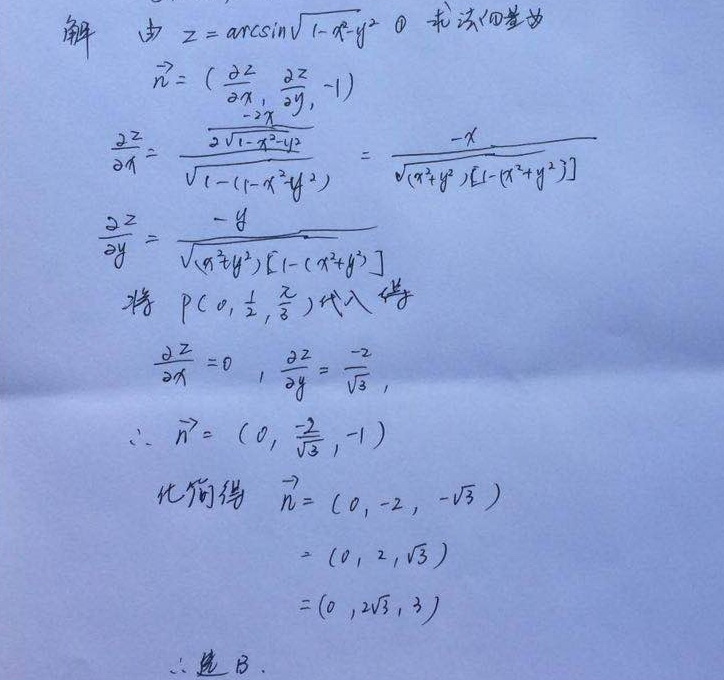 解 由 z = arcsin√(1-x²-y²) ① 求法向量为
n⃗ = (∂z/∂x, ∂z/∂y, -1)
∂z/∂x = (-2x / 2√(1-x²-y²)) / √(1-(1-x²-y²)) = -x / √((x²+y²)[1-(x²+y²)])
∂z/∂y = -y / √((x²+y²)[1-(x²+y²)])
将 P(0, 1/2, π/3) 代入 得
∂z/∂x = 0 , ∂z/∂y = -2/√3 ,
∴ n⃗ = (0, -2/√3, -1)
化简得 n⃗ = (0, -2, -√3)
= (0, 2, √3)
= (0, 2√3, 3)
∴ 选 B.